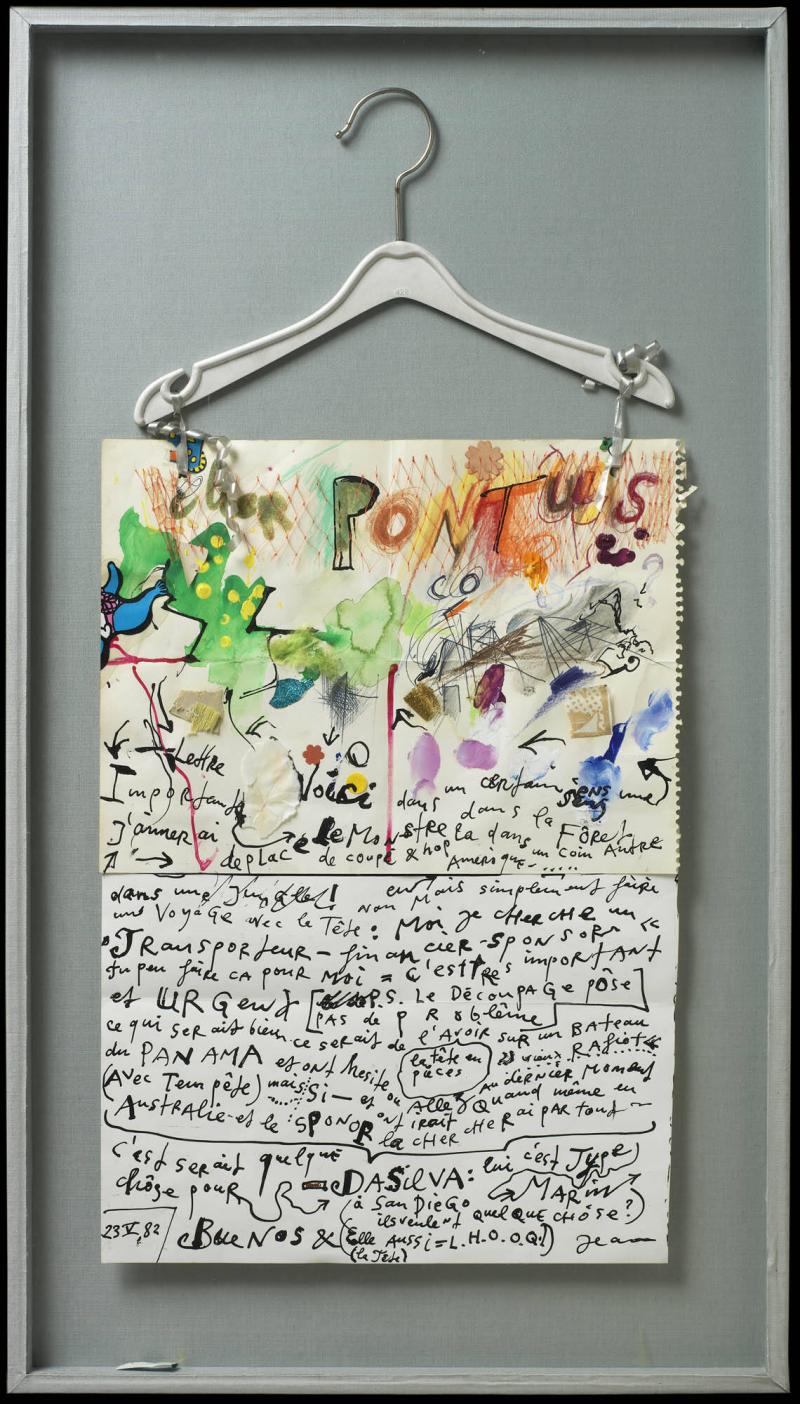 cher PONTUS
Lettre
Importante Voici dans un certain sens une
J'aimerai le Monstre la dans la Fôret
deplacé de coupé & hop dans un coin Autre
Amerique
dans une Jungle! non Mais simplement faire
une VoyAGe avec la Tête: Moi je cHeRcHe un
"TRanspoRteuR – financieR-SPonsoR" impoRtANt
tu peu faire ca pour Moi = C'est tRes
et URGent [P.S. Le DécoupAGe pôse
pAS de pRoblème]
ce qui serait bien ce serait de l'Avoir sur un BAteau
du PANAMA et ont hesite ou vieux RAfiot
(la tête en pièces)
(Avec Tempête) mais Si – et Au deRnieR Moment
Allez Quand même en
Australie et le SPONOR ont irait
la cHeRcHeR ai pARtout
C'est serait quelque
chôse pour DASilVA: lui c'est Type
MARin
(à San DieGo
ils veulent quelque cHôse?)
23 V. 82 BueNos & (Elle Aussi = L.H.O.O.Q!) Jean
(la Tête)